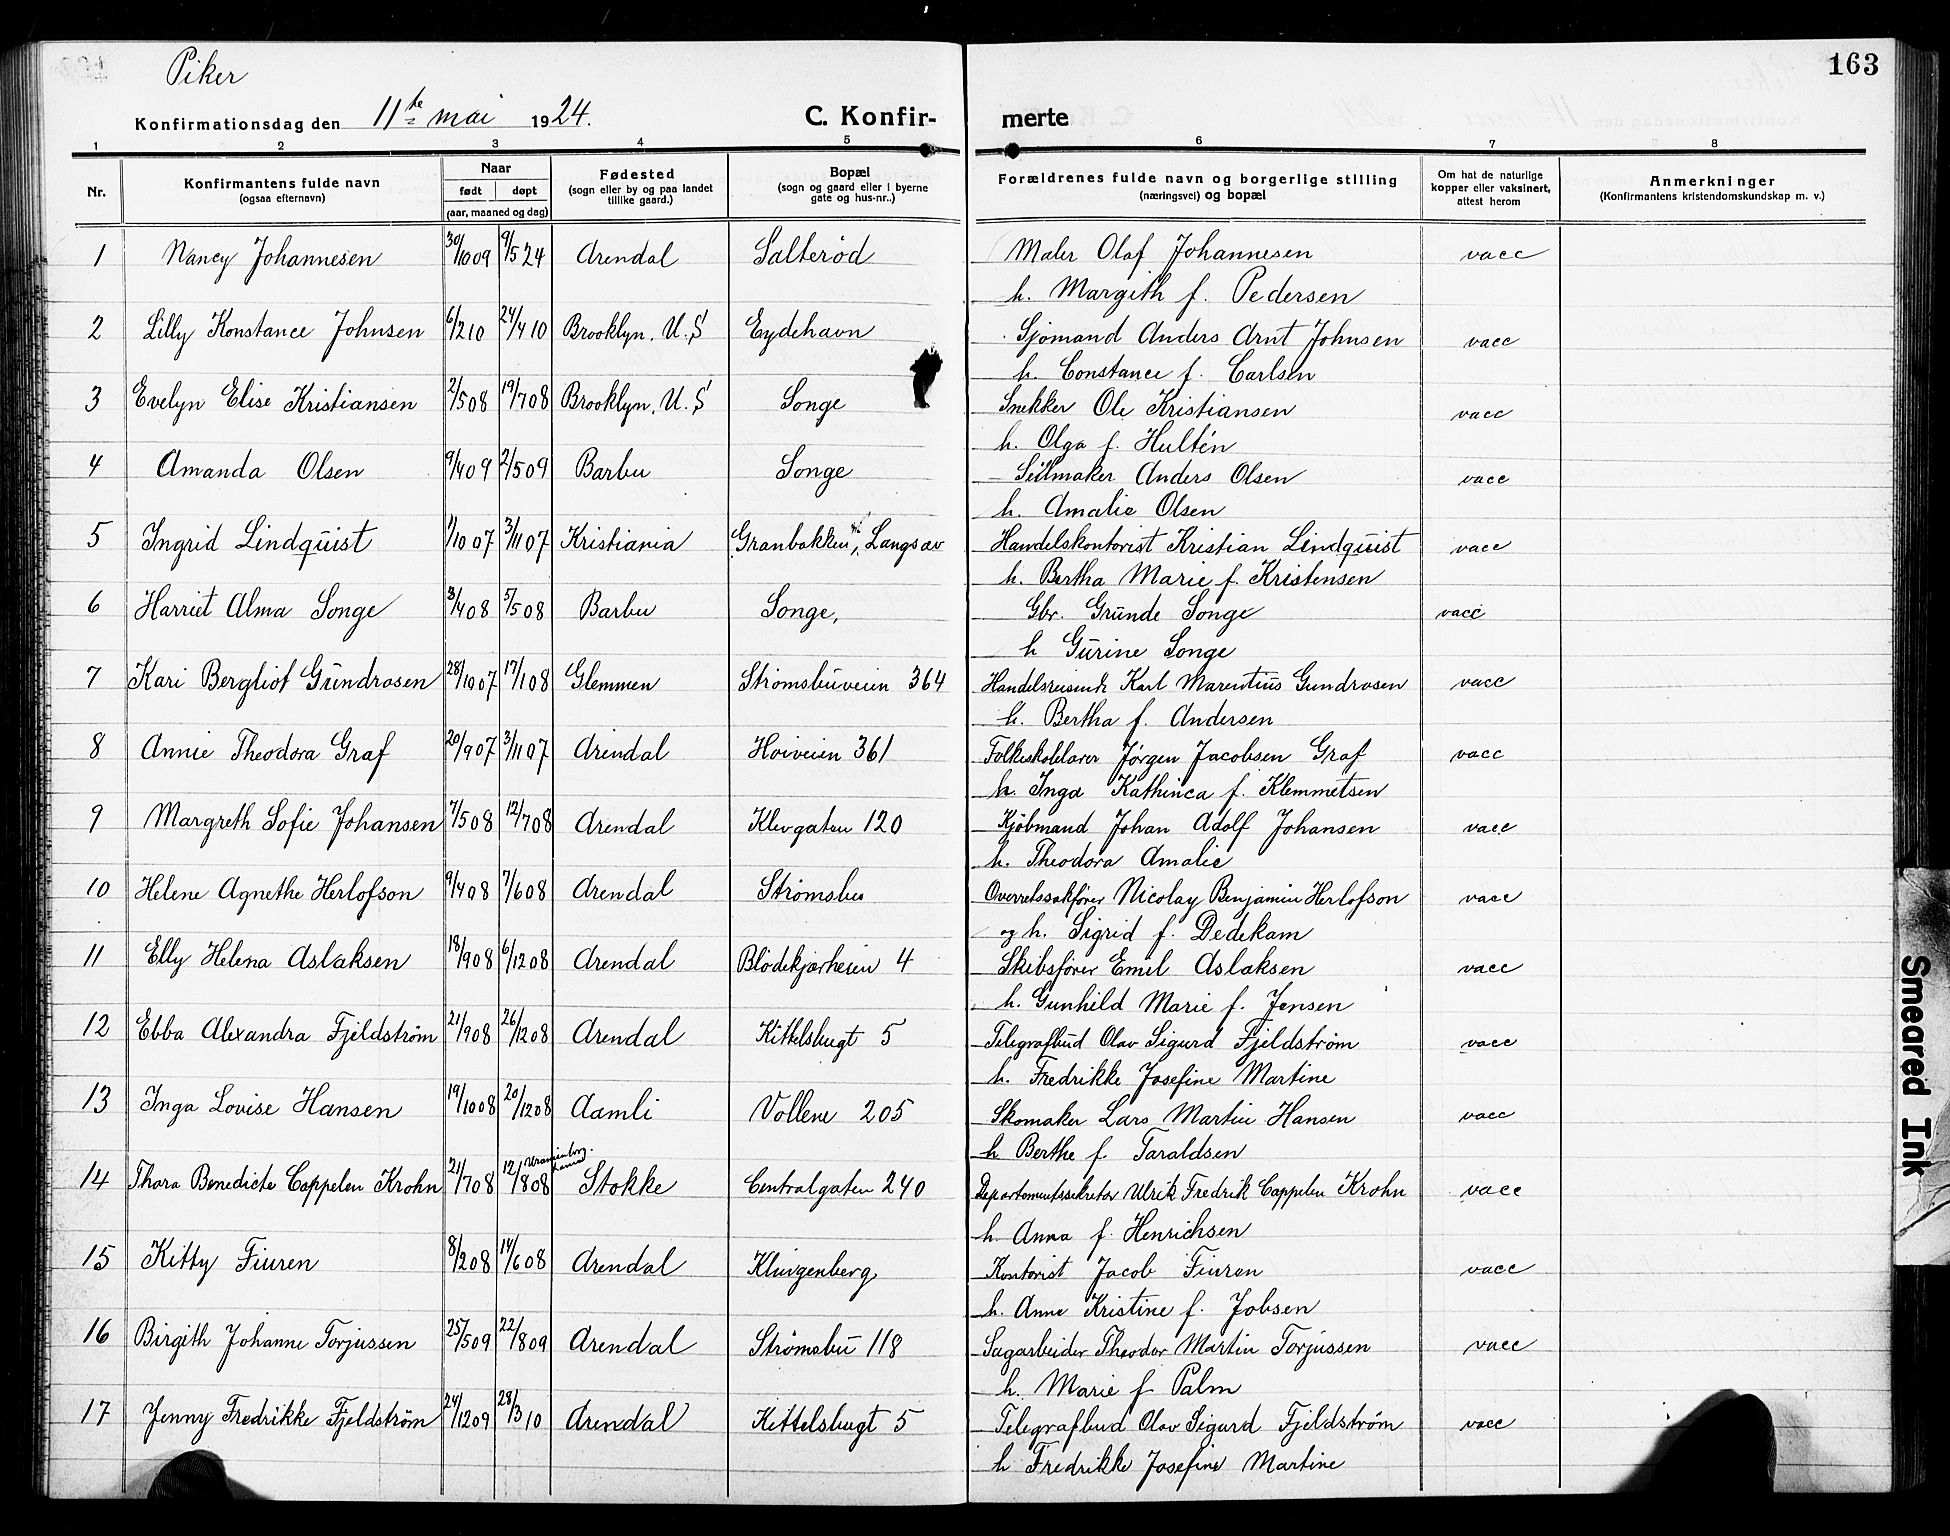 Piker
163
Konfirmationsdag den 11te mai 1924.
C. Konfir-
merte
1 2 3 4 5 6 7 8
Nr.
Konfirmantens fulde navn
(ogsaa efternavn)
Naar
født døpt
(aar, maaned og dag)
Fødested
(sogn eller by og paa landet
tillike gaard.)
Bopæl
(sogn og gaard eller i byerne
gate og hus-nr..)
Forældrenes fulde navn og borgerlige stilling
(næringsvei) og bopæl
Om hat de naturlige
kopper eller vaksinert,
attest herom
Anmerkninger
(Konfirmantens kristendomskundskap m. v.)
1 Nancy Johannesen 30/10 09 9/5 24 Arendal Salterød Maler Olaf Johannesen vacc
h. Margith f. Pedersen
2 Lilly Konstance Johnsen 6/2 10 24/4 10 Brooklyn. U.S Eydehavn Sjømand Anders Arnt Johnsen vacc
h. Constance f. Carlsen
3 Evelyn Elise Kristiansen 2/5 08 19/7 08 Brooklyn. U.S Songe Snekker Ole Kristiansen vacc
h. Olga f. Hultén
4 Amanda Olsen 9/4 09 2/5 09 Barbu Songe Seilmaker Anders Olsen vacc
h. Amalie Olsen
5 Ingrid Lindquist 1/10 07 3/11 07 Kristiania Granbakken, Langsæv Handelskontorist Kristian Lindquist vacc
h. Bertha Marie f. Kristensen
6 Harriet Alma Songe 3/4 08 5/5 08 Barbu Songe, Gbr. Grunde Songe vacc
h Gurine Songe
7 Kari Bergliot Gundrosen 28/10 07 17/1 08 Glemmen Strømsbuveien 364 Handelsreisende Karl Marentius Gundrosen vacc
h. Bertha f. Andersen
8 Annie Theodora Graf 20/9 07 3/11 07 Arendal Høiveien 361 Folkeskolelærer Jørgen Jacobsen Graf vacc
h. Inga Kathinca f. Klemmetsen
9 Margreth Sofie Johansen 7/5 08 12/7 08 Arendal Klevgaten 120 Kjøbmand Johan Adolf Johansen vacc
h. Theodora Amalie
10 Helene Agnethe Herlofson 9/4 08 7/6 08 Arendal Strømsbu Overretssakfører Nicolay Benjamin Herlofson vacc
og h. Sigrid f. Dedekam
11 Elly Helena Aslaksen 18/9 08 6/12 08 Arendal Blødekjærheien 4 Skibsfører Emil Aslaksen vacc
h. Gunhild Marie f. Jensen
12 Ebba Alexandra Fjeldstrøm 21/9 08 26/12 08 Arendal Kittelsbugt 5 Telegrafbud Olav Sigurd Fjeldstrøm vacc
h. Fredrikke Josefine Martine
13 Inga Lovise Hansen 19/10 08 20/12 08 Aamli Vollene 205 Skomaker Lars Martin Hansen vacc
h Berthe f Taraldsen
14 Thora Benedicte Cappelen Krohn 21/7 08 12/8 08 Uranienborg. Stokke Centralgaten 240 Departementssekretær Ulrik Fredrik Cappelen Krohn vacc
h. Anna f. Henrichsen
15 Kitty Fiuren 8/2 08 14/6 08 Arendal Klingenberg Kontorist Jacob Fiuren vacc
h. Anne Kristine f. Jobsen
16 Birgith Johanne Torjussen 25/5 09 22/8 09 Arendal Strømsbu 118 Sagarbeider Theodor Martin Torjussen vacc
h. Marie f Palm
17 Jenny Fredrikke Fjeldstrøm 24/12 09 28/3 10 Arendal Kittelsbugt 5 Telegrafbud Olav Sigurd Fjeldstrøm vacc
h Fredrikke Josefine Martine
Smeared Ink